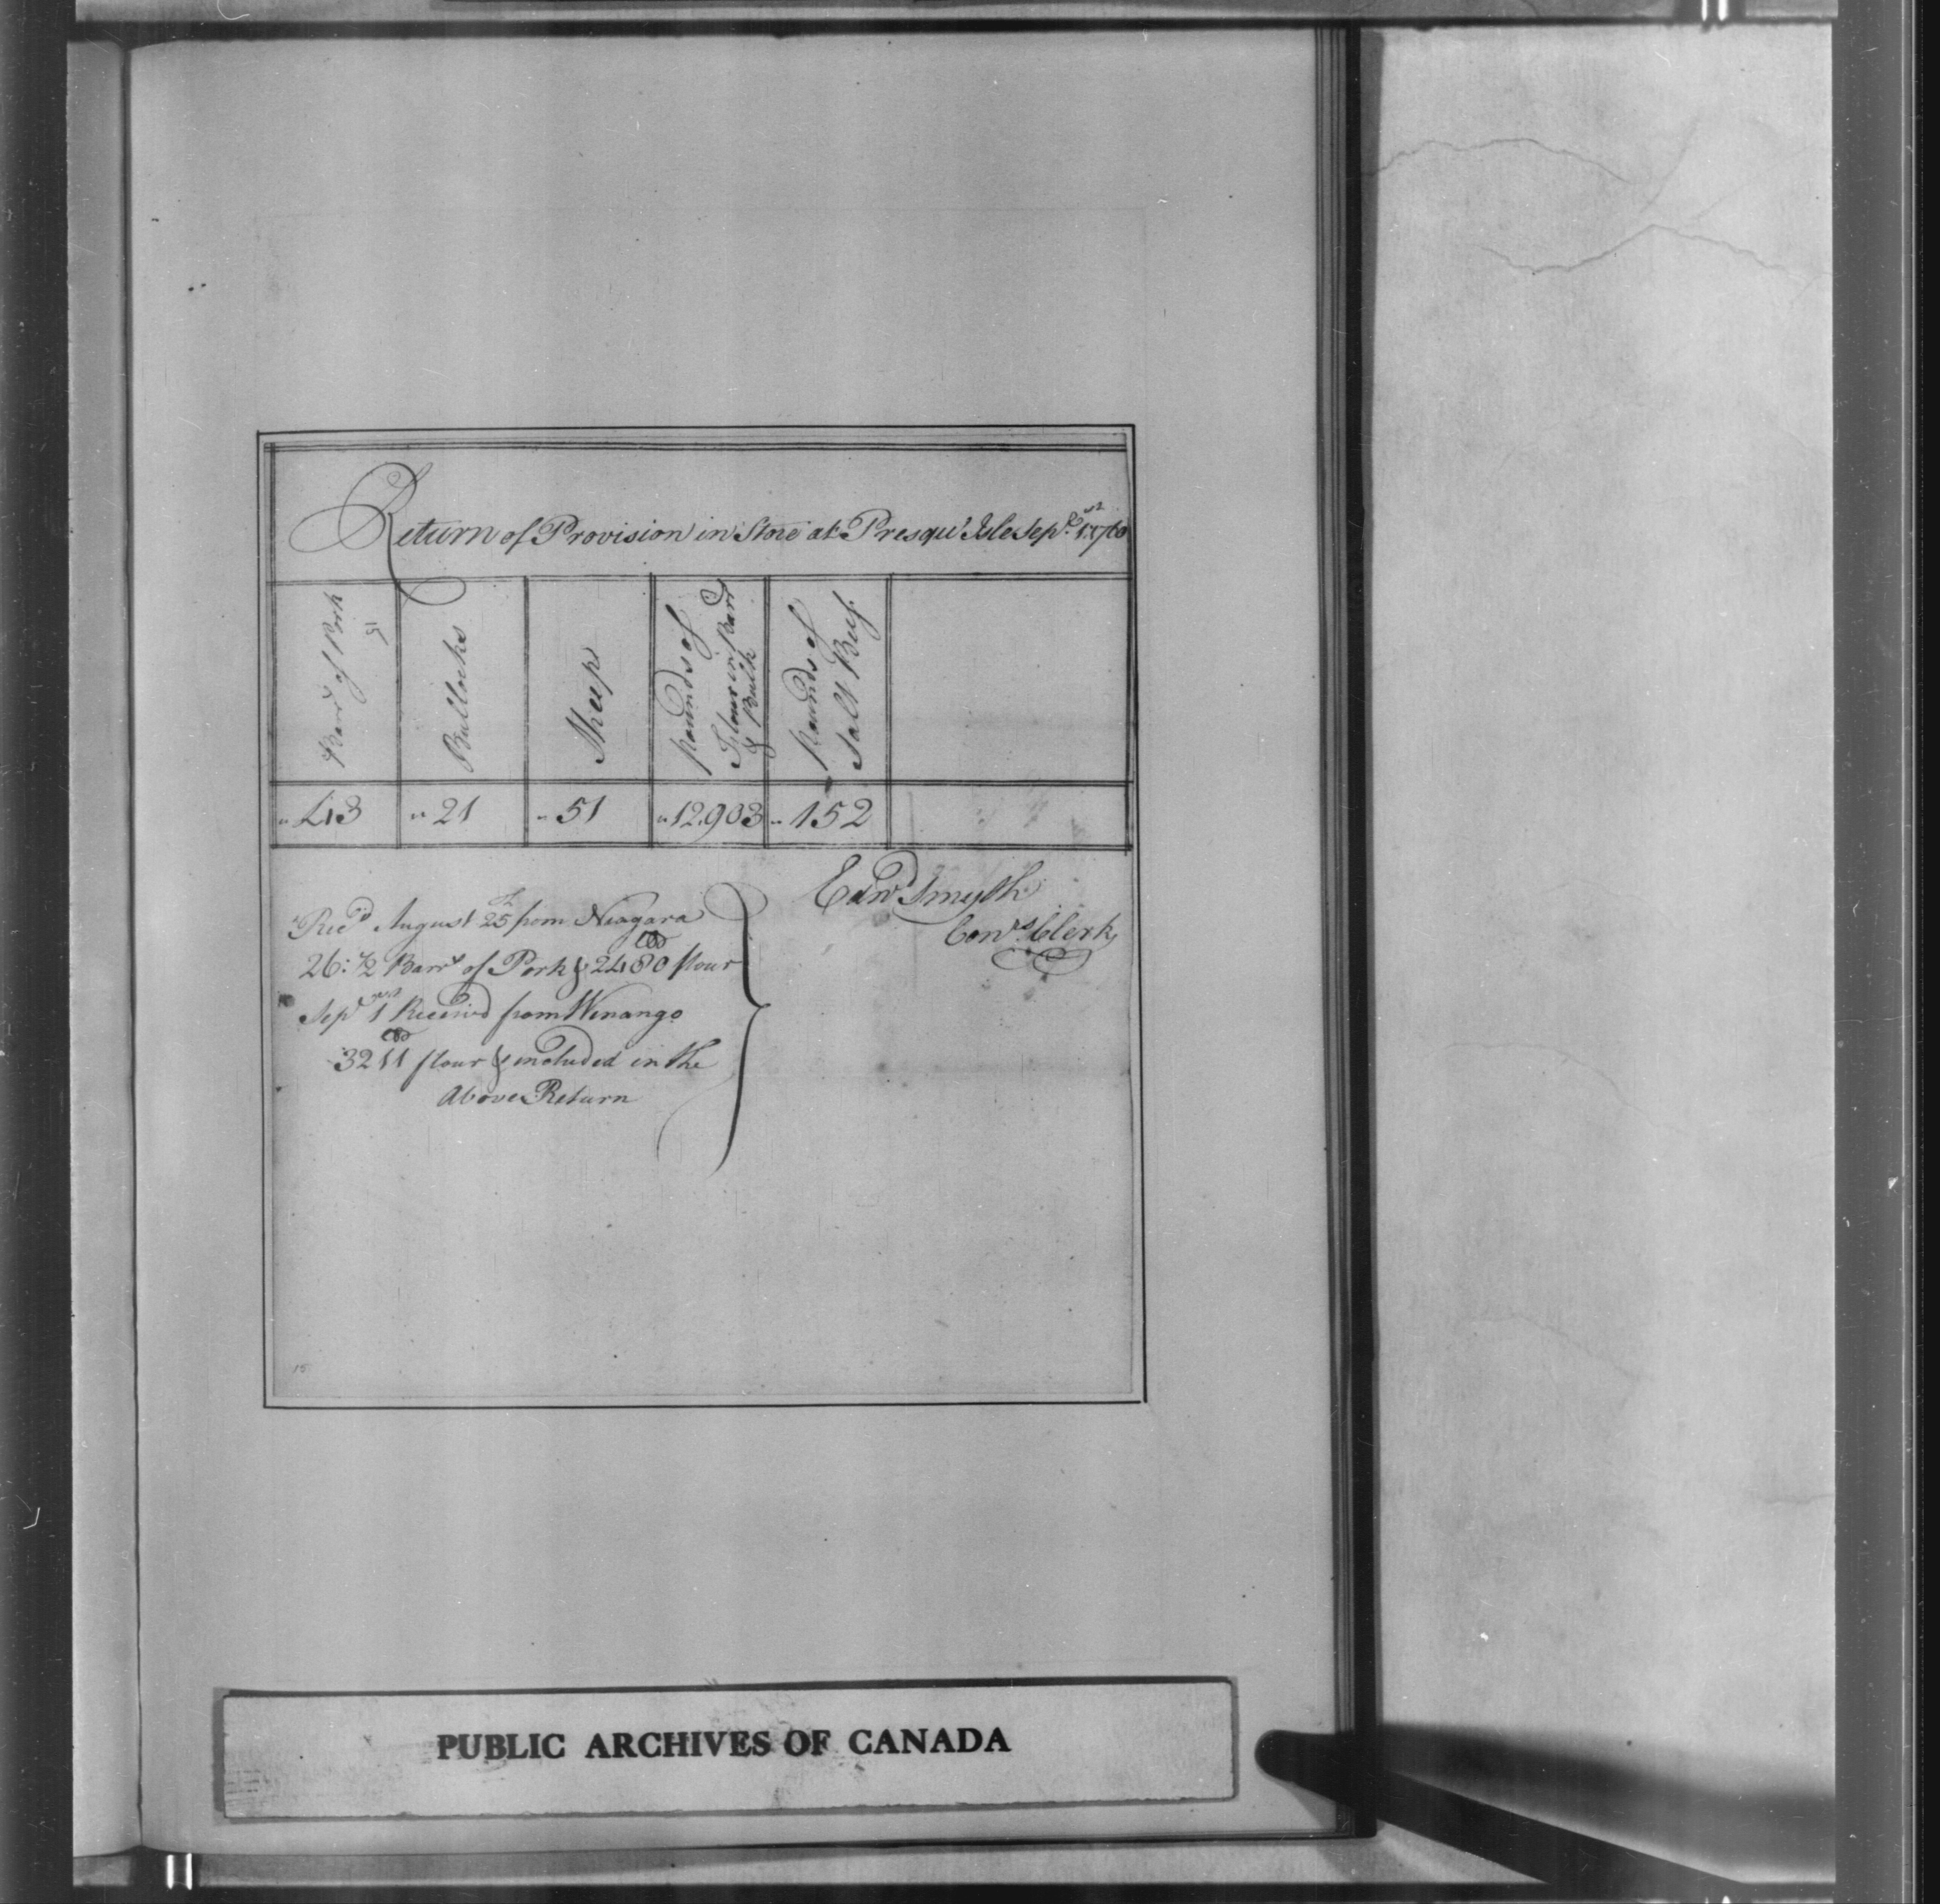 Return of Provision in Store at Presqu' Isle Sepr. 1st 1760
Barrs of Pork
Bullocks
Sheep
pounds of
Flour in Barrs
& Bulk
pounds of
Salt Beef.
43
21
51
12.903
152
Recd August 25th from Niagara
26: 1/2 Barrs of Pork & 2480 lbs flour
Sepr 1st Received from Wenango
3211 lbs flour & included in the
Above Return
Edwd Smyth
Comrs. Clerk
15
PUBLIC ARCHIVES OF CANADA